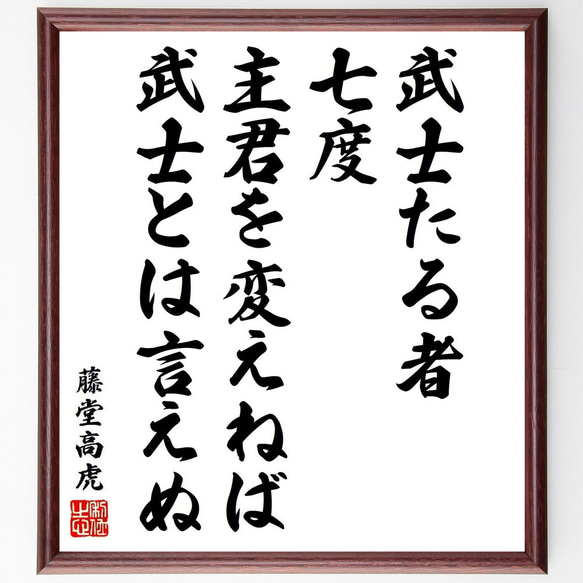 武士たる者
七度
主君を変えねば
武士とは言えぬ
藤堂高虎